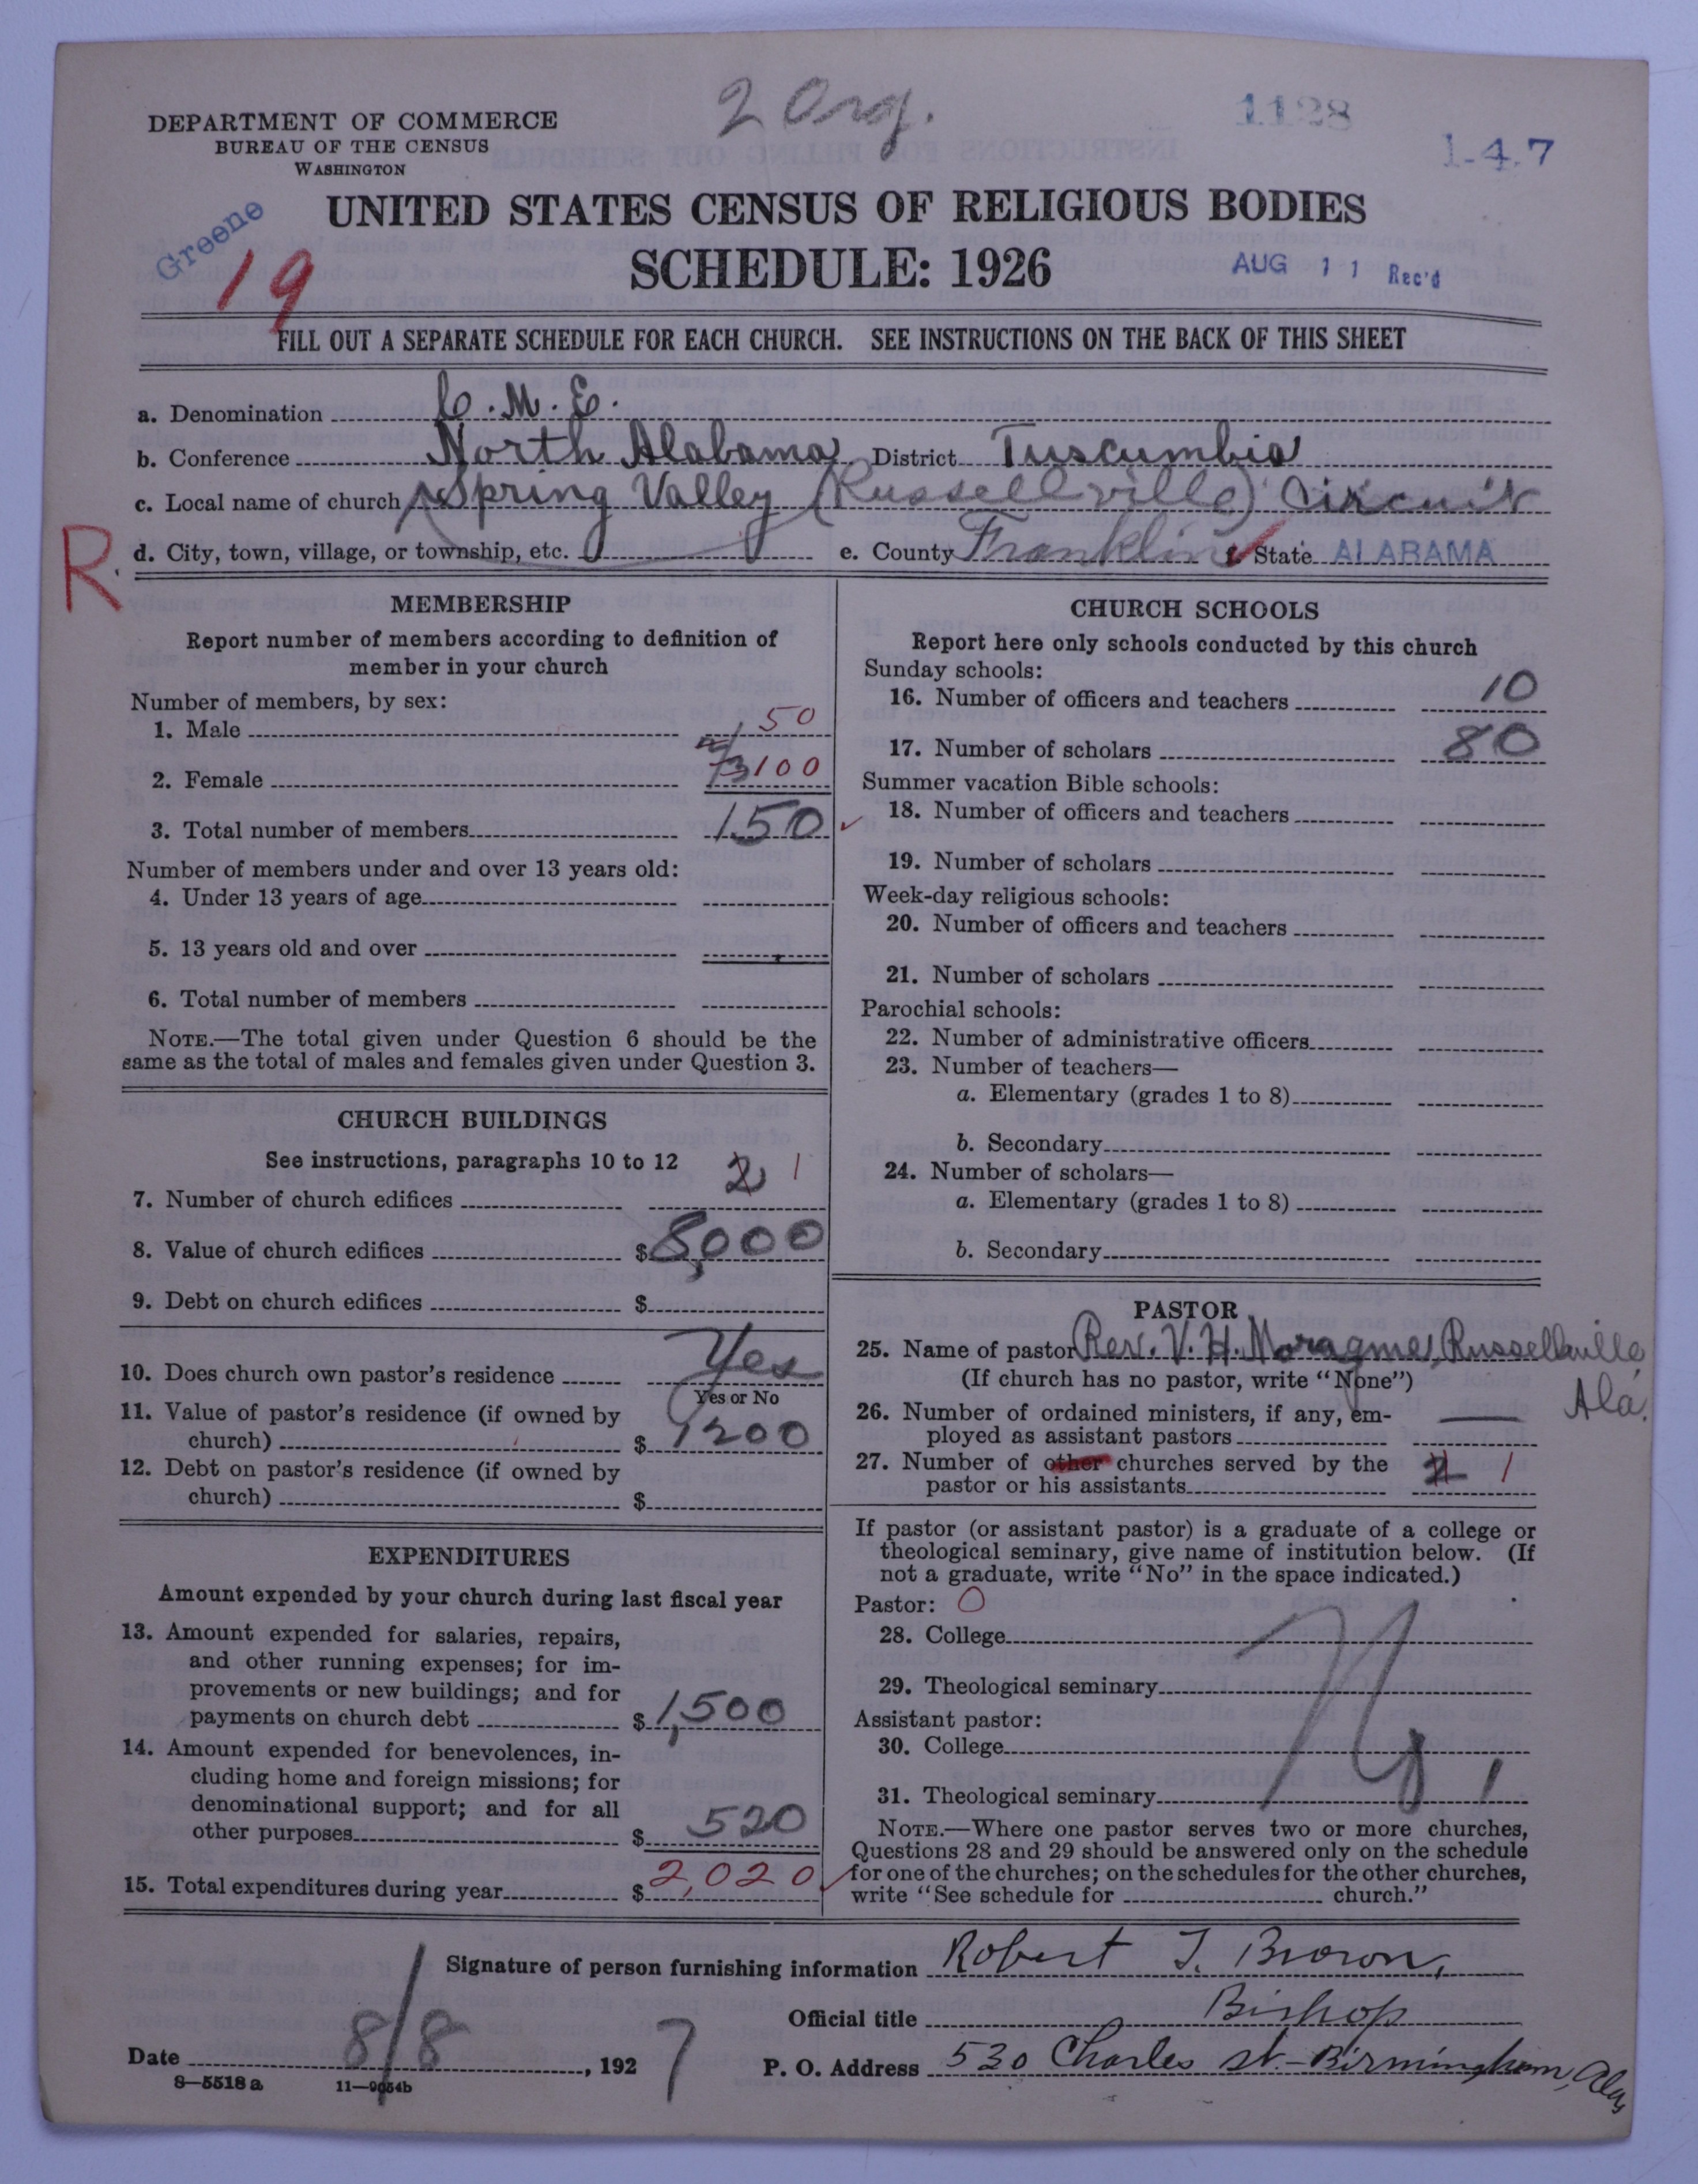 2 Org.
1128
1-4.7
DEPARTMENT OF COMMERCE
BUREAU OF THE CENSUS
WASHINGTON
Greene
19
UNITED STATES CENSUS OF RELIGIOUS BODIES
SCHEDULE: 1926
AUG 11 Rec'd
FILL OUT A SEPARATE SCHEDULE FOR EACH CHURCH. SEE INSTRUCTIONS ON THE BACK OF THIS SHEET
a. Denomination C. M. E.
b. Conference North Alabama District Tuscumbia
c. Local name of church Spring Valley (Russellville) Circuit
R
d. City, town, village, or township, etc. e. County Franklin f. State ALABAMA
MEMBERSHIP
Report number of members according to definition of
member in your church
Number of members, by sex:
1. Male 50
2. Female 100
3. Total number of members 150
Number of members under and over 13 years old:
4. Under 13 years of age
5. 13 years old and over
6. Total number of members
NOTE.—The total given under Question 6 should be the
same as the total of males and females given under Question 3.
CHURCH BUILDINGS
See instructions, paragraphs 10 to 12
7. Number of church edifices 2 1
8. Value of church edifices $8,000
9. Debt on church edifices $
10. Does church own pastor's residence Yes
Yes or No
11. Value of pastor's residence (if owned by
church) $ 1200
12. Debt on pastor's residence (if owned by
church) $
EXPENDITURES
Amount expended by your church during last fiscal year
13. Amount expended for salaries, repairs,
and other running expenses; for im-
provements or new buildings; and for
payments on church debt $1,500
14. Amount expended for benevolences, in-
cluding home and foreign missions; for
denominational support; and for all
other purposes $ 520
15. Total expenditures during year $ 2,020
CHURCH SCHOOLS
Report here only schools conducted by this church
Sunday schools:
16. Number of officers and teachers 10
17. Number of scholars 80
Summer vacation Bible schools:
18. Number of officers and teachers
19. Number of scholars
Week-day religious schools:
20. Number of officers and teachers
21. Number of scholars
Parochial schools:
22. Number of administrative officers
23. Number of teachers—
a. Elementary (grades 1 to 8)
b. Secondary
24. Number of scholars—
a. Elementary (grades 1 to 8)
b. Secondary
PASTOR
25. Name of pastor Rev. V. H. Moragme, Russellville,
Ala.
(If church has no pastor, write "None")
26. Number of ordained ministers, if any, em-
ployed as assistant pastors
27. Number of other churches served by the
pastor or his assistants 2 1
If pastor (or assistant pastor) is a graduate of a college or
theological seminary, give name of institution below. (If
not a graduate, write "No" in the space indicated.)
Pastor: 0
28. College
29. Theological seminary
Assistant pastor:
30. College
31. Theological seminary
NOTE.—Where one pastor serves two or more churches,
Questions 28 and 29 should be answered only on the schedule
for one of the churches; on the schedules for the other churches,
write "See schedule for church."
Signature of person furnishing information Robert T. Brown,
Official title Bishop
Date 8/8, 1927 P. O. Address 530 Charles st.-Birmingham, Ala,
8—5518 a 11—9054b